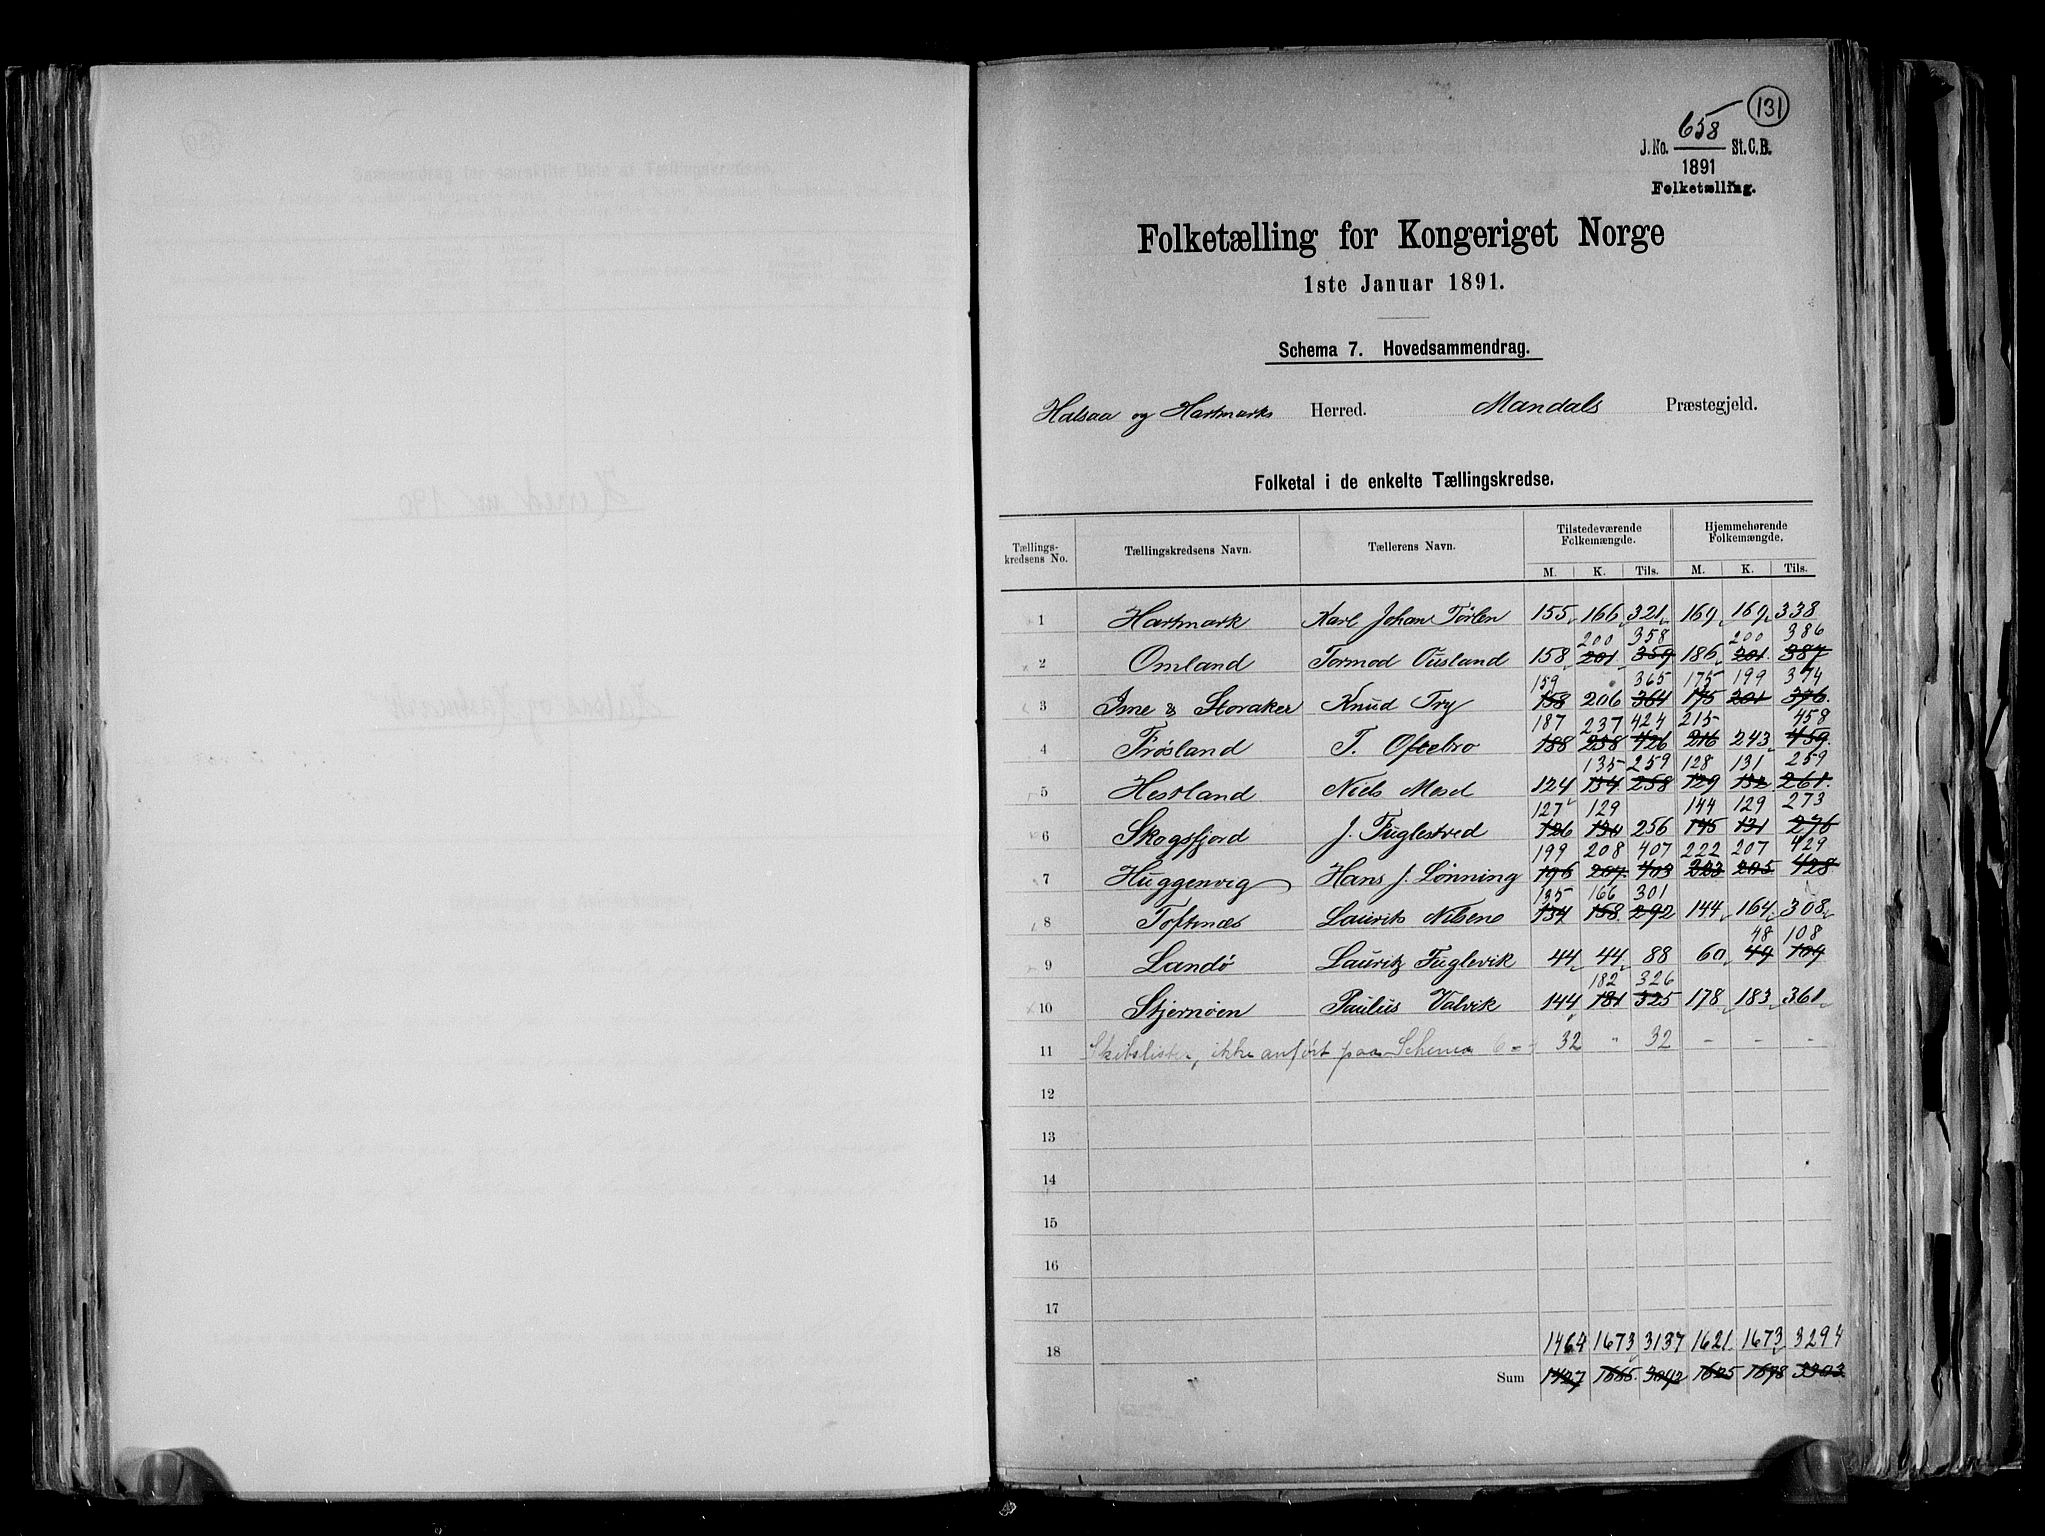 131
658
J. No. St. C. B.
1891
Folketælling.
Folketælling for Kongeriget Norge
1ste Januar 1891.
Schema 7. Hovedsammendrag.
Halsaa og Hartmarks Herred. Mandals Præstegjeld.
Folketal i de enkelte Tællingskredse.
Tilstedeværende Hjemmehørende
Tællings- Tællingskredsens Navn. Tællerens Navn. Folkemængde. Folkemængde.
kredsens No.
M. K. Tils. M. K. Tils.
1 Hartmark Karl Johan Tørlen 155 166 321 169 169 338
200 358 200 386
2 Omland Tormod Ousland 158 201 359 186 201 387
159 365 175 199 374
3 Ime & Storaker Knud Try 158 206 364 195 201 396
187 237 424 215 458
4 Frøsland T. Oftebro 188 238 426 216 243 459
135 259 128 131 259
5 Hestland Niels Mosd 124 134 258 129 132 261
127 129 144 129 273
6 Skogsfjord J. Fuglestved 126 130 256 145 131 276
199 208 407 222 207 429
7 Huggenvig Hans J. Lønning 196 207 403 223 205 428
135 166 301
8 Toftenæs Laurits Nilsen 134 158 292 144 164 308
48 108
9 Landø Lauritz Fuglevik 44 44 88 60 49 109
182 326
10 Stjernøen Paulus Valvik 144 181 325 178 183 361
11 Skibslister, ikke anført paa Schema 6 - 32 " 32 - - -
12
13
14
15
16
17
18 1464 1673 3137 1621 1673 3294
Sum 1427 1665 3092 1625 1678 3303